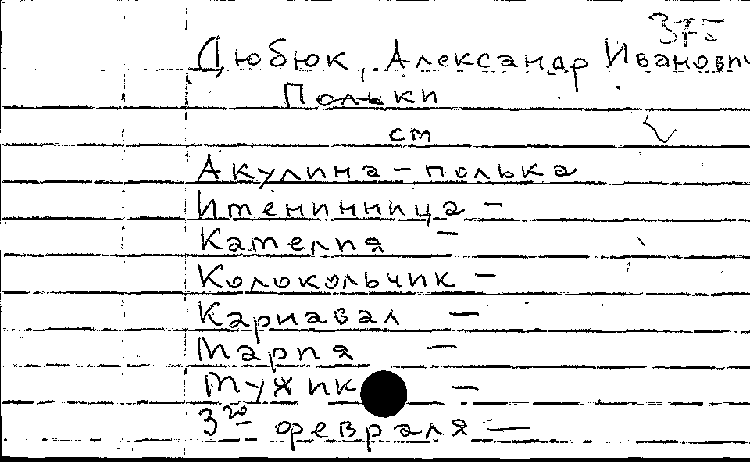 37=
Дюбюк, Александр Иванович
Польки
см
Акулина – полька
Именинница –
Камелия –
Колокольчик –
Карнавал –
Мария –
Мужик –
3го февраля –